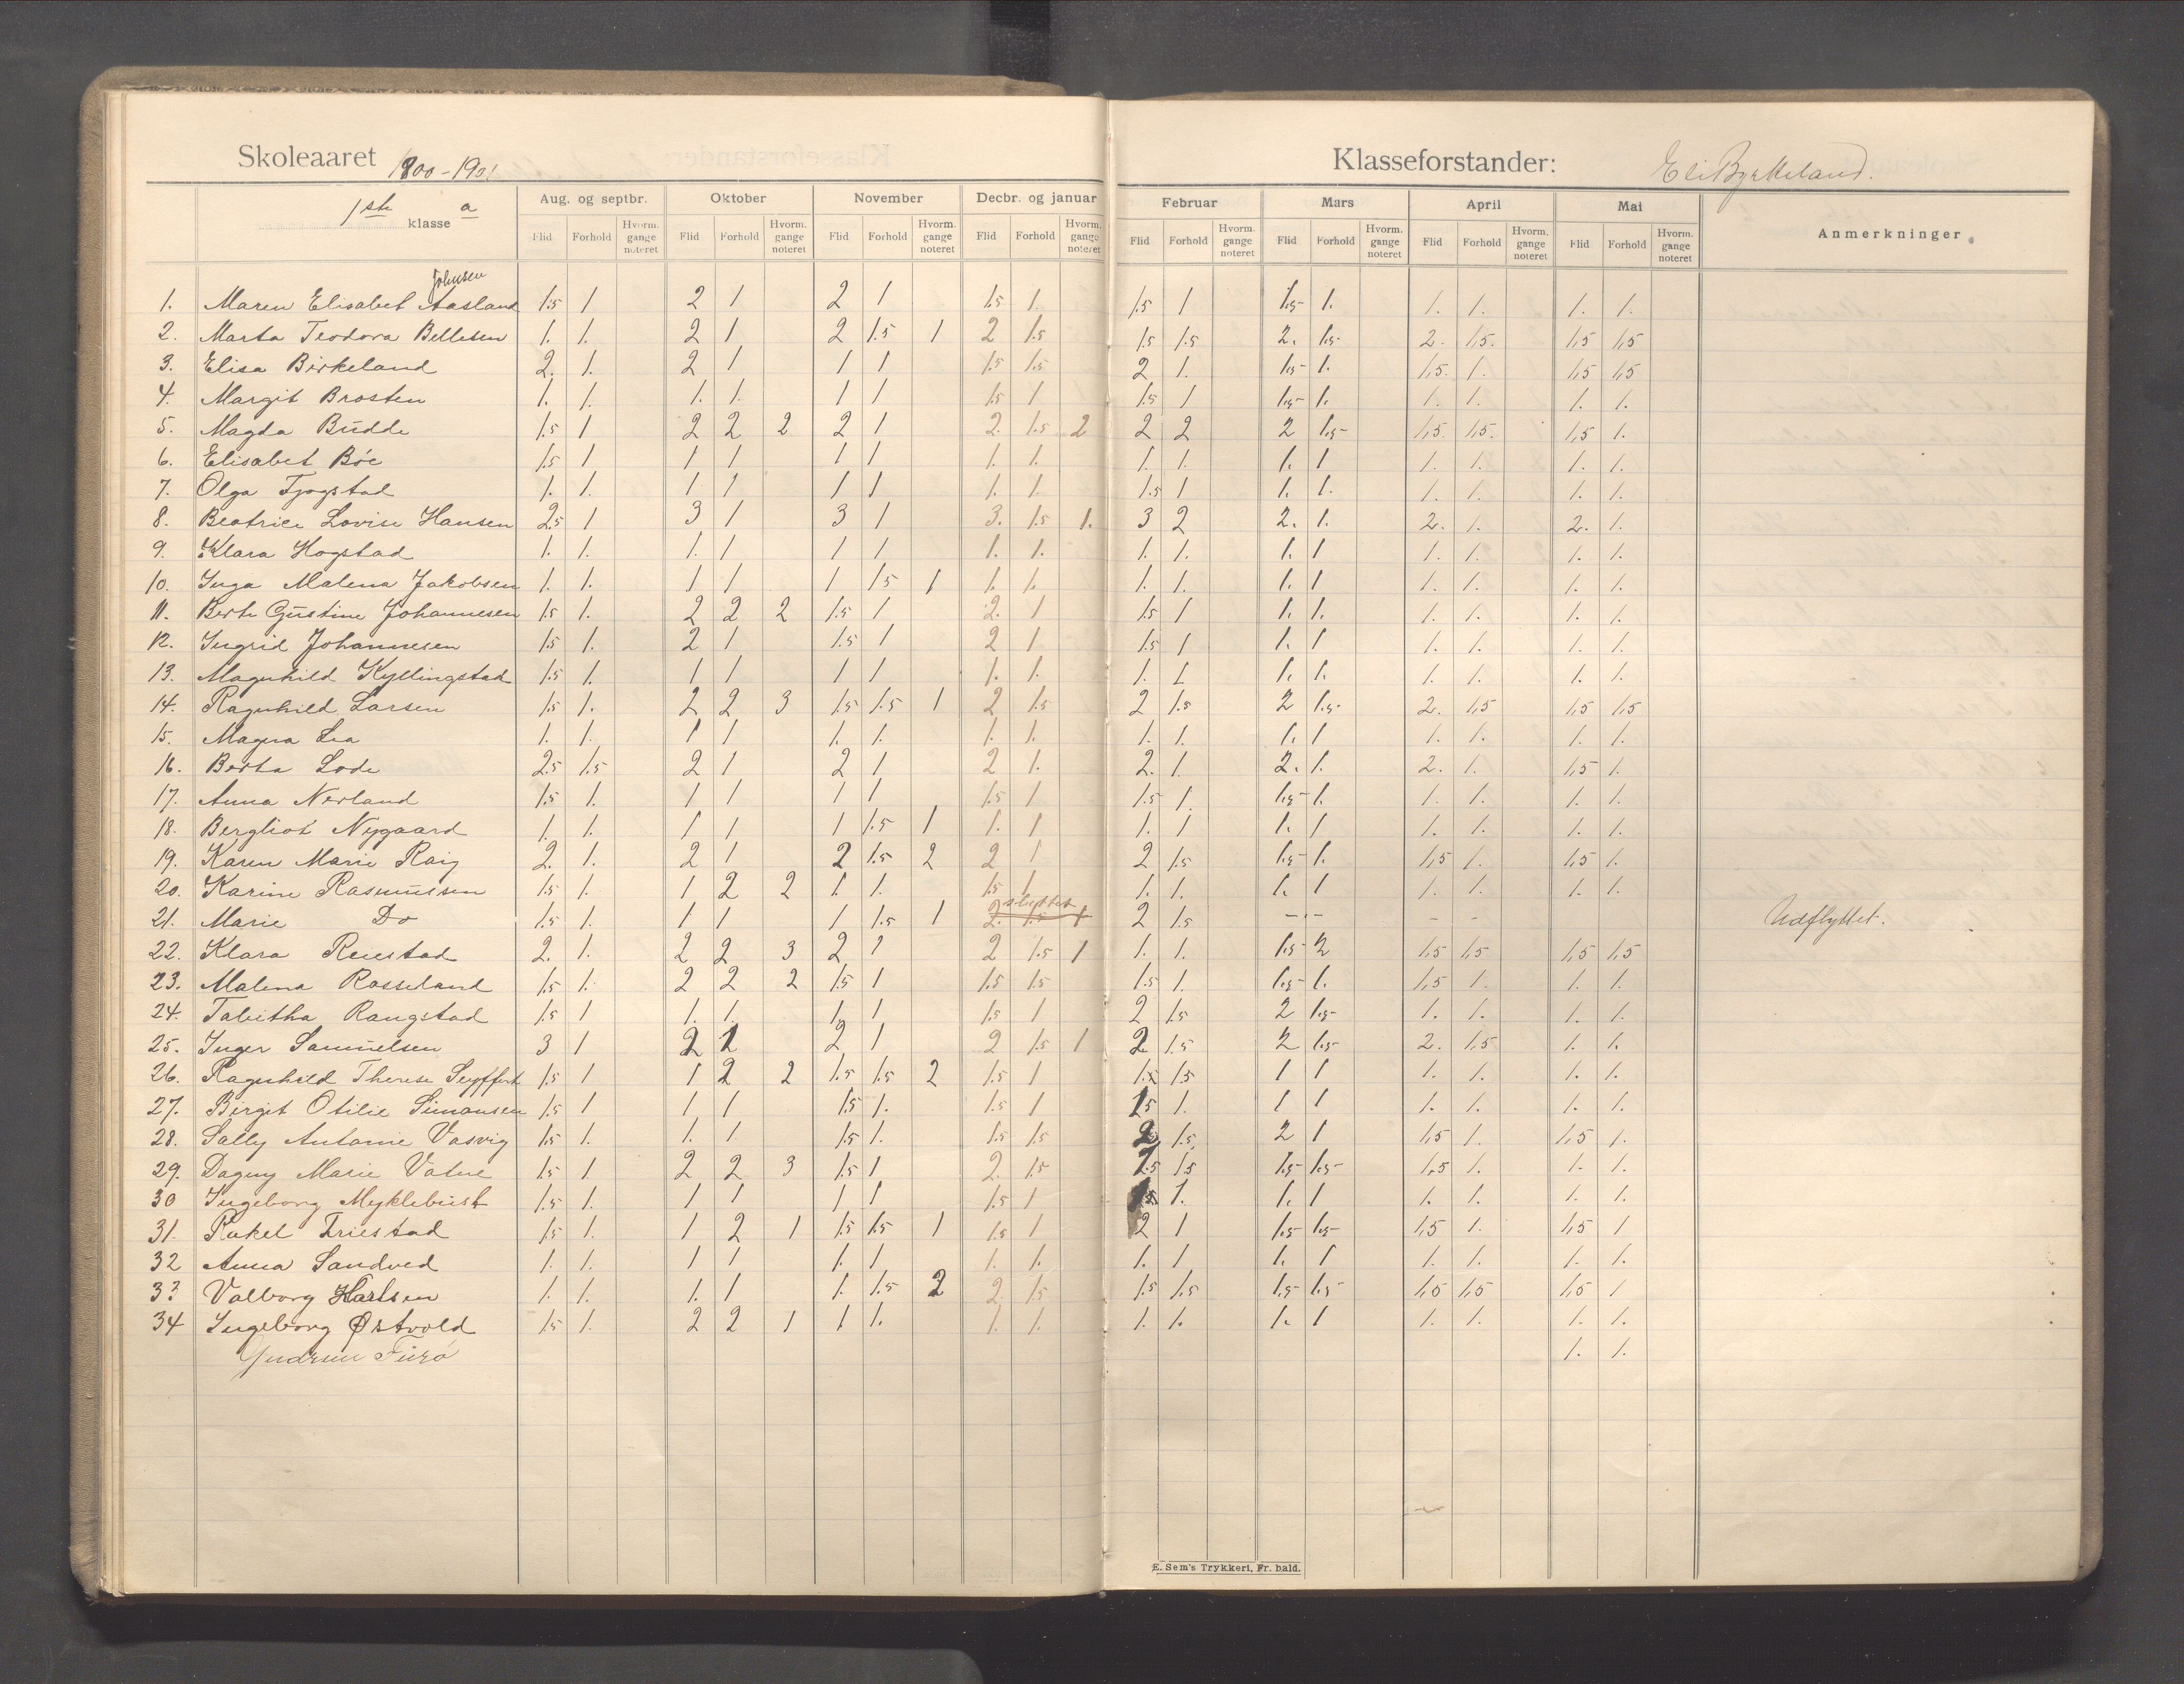 Skoleaaret 1900-1901
Klasseforstander: Eli Byrkeland.
1ste klasse a
Aug. og septbr. Oktober November Decbr. og januar Februar Mars April Mai Anmerkninger
Flid Forhold Hvorm. gange noteret Flid Forhold Hvorm. gange noteret Flid Forhold Hvorm. gange noteret Flid Forhold Hvorm. gange noteret Flid Forhold Hvorm. gange noteret Flid Forhold Hvorm. gange noteret Flid Forhold Hvorm. gange noteret Flid Forhold Hvorm. gange noteret
Johnsen
1. Maren Elisabet Aasland 1.5 1 2 1 2 1 1.5 1. 1.5 1 1.5 1. 1. 1. 1. 1.
2. Marta Teodora Bellesen 1. 1. 2 1 2 1.5 1 2 1.5 1.5 1.5 2. 1.5 2. 1.5. 1.5 1.5
3. Elisa Birkeland 2. 1. 2 1 1 1 1.5 1.5 2 1. 1.5 1. 1.5. 1. 1.5 1.5
4. Margit Brosten 1. 1. 1. 1. 1 1 1.5 1 1.5 1 1.5 1. 1. 1. 1. 1.
5. Magda Budde 1.5 1 2 2 2 2 1 2. 1.5 2 2 2 2 1.5 1.5. 1.5. 1.5 1.
6. Elisabet Bøe 1.5 1 1 1 1 1 1. 1. 1. 1. 1. 1 1. 1. 1. 1.
7. Olga Fjogstad 1. 1. 1 1 1 1 1. 1. 1.5 1 1. 1. 1. 1. 1. 1.
8. Beatrice Lovise Hansen 2.5 1 3 1 3 1 3. 1.5 1. 3 2 2. 1. 2. 1. 2. 1.
9. Klara Hogstad 1. 1. 1. 1 1 1 1. 1. 1. 1. 1. 1 1. 1. 1. 1.
10. Inga Malena Jakobsen 1. 1. 1 1 1 1.5 1 1. 1. 1. 1. 1. 1 1. 1. 1. 1.
11. Berte Gustine Johannesen 1.5 1. 2 2 2 1.5 1 2. 1 1.5 1 1. 1. 1. 1. 1. 1.
12. Ingrid Johannesen 1.5 1. 2 1 1.5 1 2 1 1.5 1 1. 1 1. 1. 1. 1.
13. Magnhild Kyllingstad 1.5 1. 1 1 1 1 1. 1. 1. 1 1. 1. 1. 1. 1. 1.
14. Ragnhild Larsen 1.5 1. 2 2 3 1.5 1.5 1 2 1.5 2 1.5 2 1.5 2. 1.5 1.5 1.5
15. Magna Lea 1. 1. 1 1 1. 1. 1. 1. 1. 1. 1. 1 1. 1. 1. 1.
16. Berta Lode 2.5 1.5 2 1 2 1 2 1. 2. 1. 2. 1. 2. 1. 1.5 1.
17. Anna Nerland 1.5 1. 1 1 1 1 1.5 1 1.5 1. 1.5 1. 1. 1. 1. 1.
18. Bergliot Nygaard 1. 1. 1 1 1 1.5 1 1. 1 1. 1 1. 1 1. 1. 1. 1.
19. Karen Marie Raig 2. 1. 2 1 2 1.5 2 2 1 2 1.5 1.5 1. 1.5 1. 1.5 1.
20. Karine Rasmussen 1.5 1. 1 2 2 1. 1. 1.5 1 1. 1. 1. 1 1. 1. 1. 1.
21. Marie Do 1.5 1. 1 1 1 1.5 1 2. 1.5 1 2 1.5 - - - - Udflyttet.
22. Klara Reiestad 2. 1. 2 2 3 2 1 2 1.5 1 1. 1. 1.5 2 1.5 1.5 1.5 1.5
23. Malena Rosseland 1.5 1. 2 2 2 1.5 1 1.5 1.5 1.5 1. 1.5 1. 1.5 1. 1. 1.
24. Tabitha Rangstad 1.5 1 1. 1. 1. 1 1.5 1 2 1.5 2 1.5 1. 1. 1. 1.
25. Inger Samuelsen 3 1 2 1 2 1 2 1.5 1 2 1.5 2 1.5 2. 1.5 1. 1.
26. Ragnhild Therese Seyffert 1.5 1 1 2 2 1.5 1.5 2 1.5 1 1.5 1.5 1 1 1. 1. 1. 1.
27. Birgit Otilie Simonsen 1.5 1 1 1 1.5 1. 1.5 1 1.5 1. 1 1 1. 1. 1. 1.
28. Sally Antonie Vasvig 1.5 1. 1. 1 1.5 1. 1.5 1.5 2 1.5 2 1 1.5 1. 1.5 1.
29. Dagny Marie Vatne 1.5 1 2 2 3 1.5 1 2. 1.5 1.5 1.5 1.5 1.5 1.5 1. 1. 1.
30 Ingeborg Myklebust 1.5 1. 1 1 1 1 1.5 1 1.5 1. 1. 1 1. 1. 1. 1.
31. Rakel Friestad 1.5 1. 1 2 1 1.5 1.5 1 1.5 1 2 1 1.5 1.5 1.5 1. 1.5 1
32 Anna Sandved 1. 1. 1 1 1. 1 1. 1. 1. 1 1. 1 1. 1. 1. 1.
33 Valborg Karlsen 1. 1. 1. 1 1. 1.5 2 2. 1.5 1.5 1.5 1.5 1.5 1.5 1.5 1.5 1
34 Ingeborg Østvold 1.5 1. 2 2 1 1 1. 1. 1. 1. 1. 1. 1 1. 1. 1. 1.
Gudrun Furø 1. 1.
E. Sem's Trykkeri, Fr. hald.